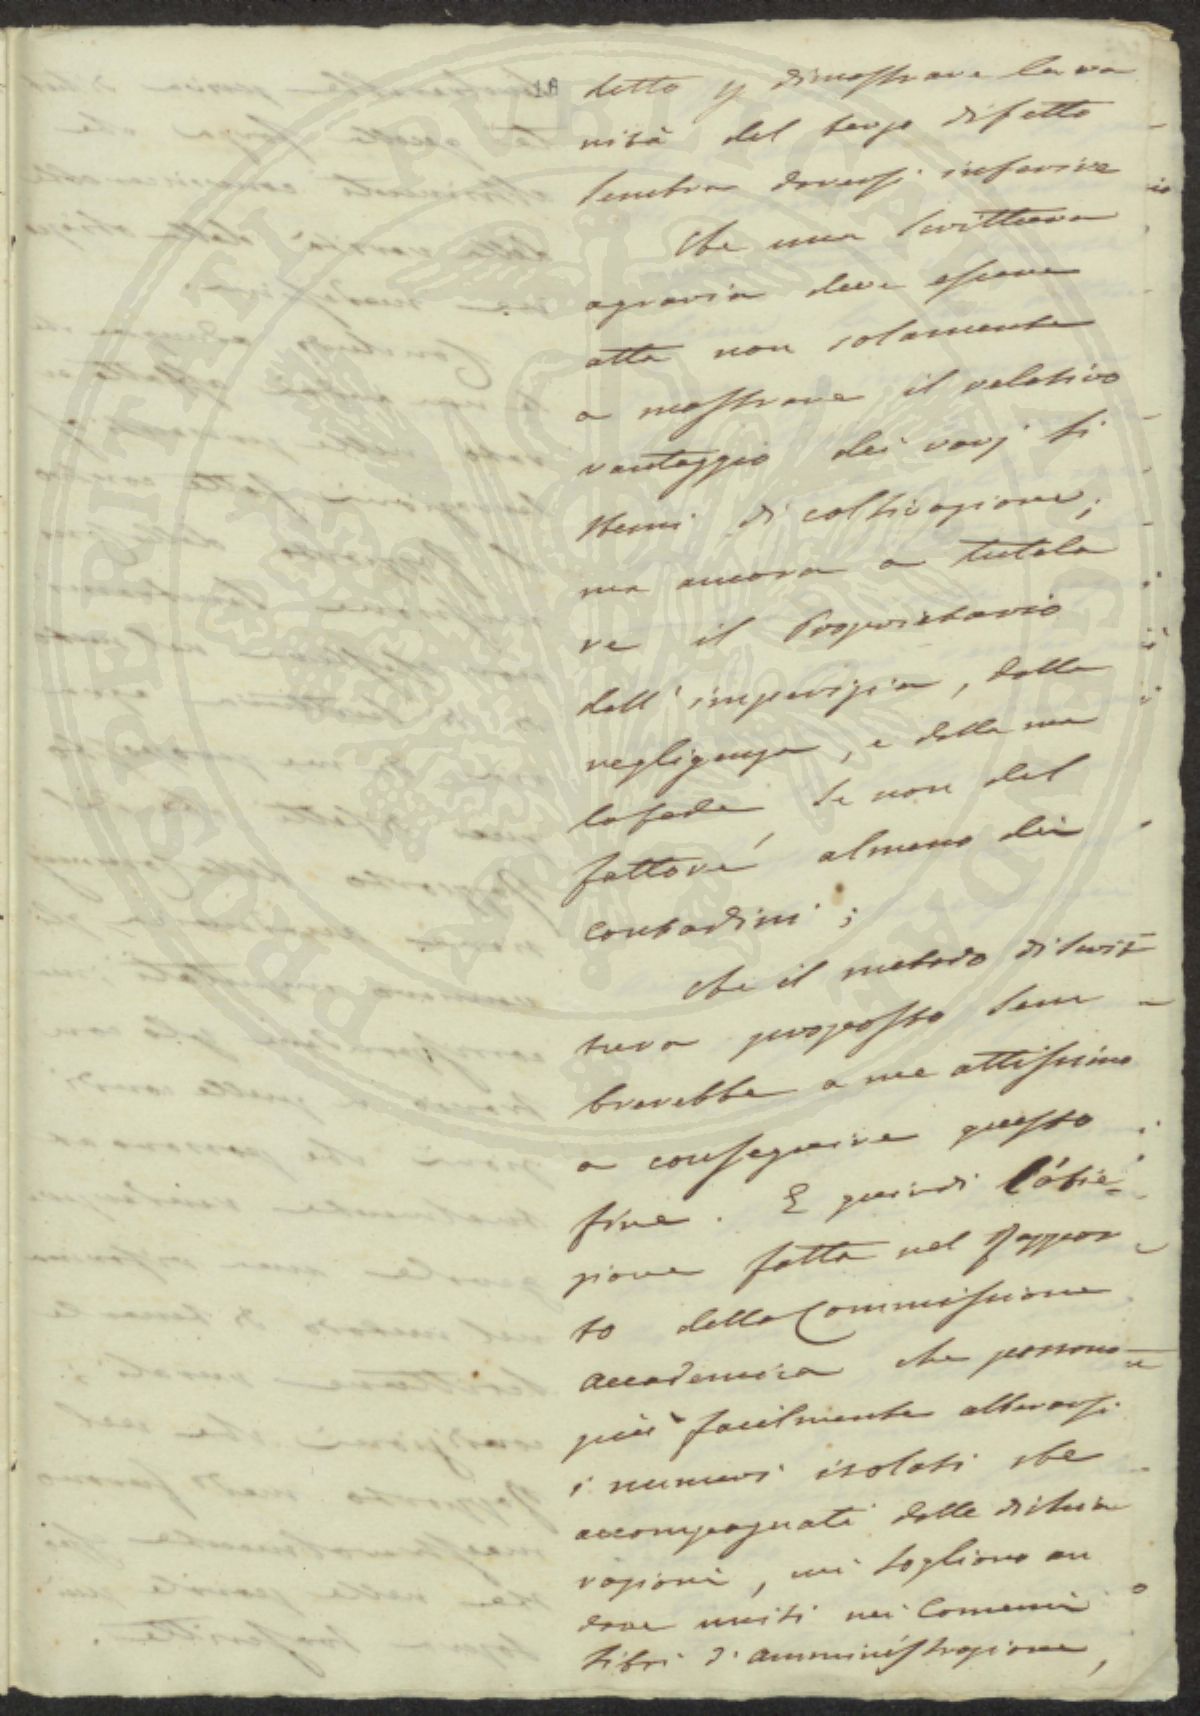 18
detto p dimostrare la va
nità del terzo difetto
sembra doversi inferire
Che una Scrittura
agraria deve essere
atta non solamente
a mostrare il relativo
vantaggio dei varj si
stemi di coltivazione;
ma ancora a tutela
re il Proprietario
dall' imperizia, dalla
negligenza, e dalla ma
lafede se non del
fattore, almeno dei
contadini;
Che il metodo di scrit
tura proposto sem
brerebbe a me attissimo
a conseguire questo
fine. E quindi l'obie=
zione fatta nel Rappor
to della Commissione
accademica che possono
più facilmente alterarsi
i numeri isolati che
accompagnati dalle dichia
razioni, cui sogliono an
dare uniti nei Comuni
libri d'amministrazione,
PROSPERITATI PVBLICAE AVGENDAE